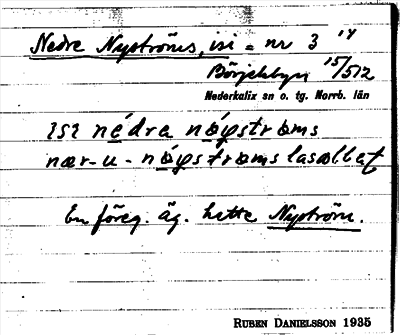 Nedre Nyströms, isi = nr 3 14
Börjelsbyn 15/512
Nederkalix sn o. tg. Norrb. län
ısı nédra nŏystrøms
nær-u-nŏystrøms lasællət
En föreg. äg. hette Nyström.
RUBEN DANIELSSON 1935